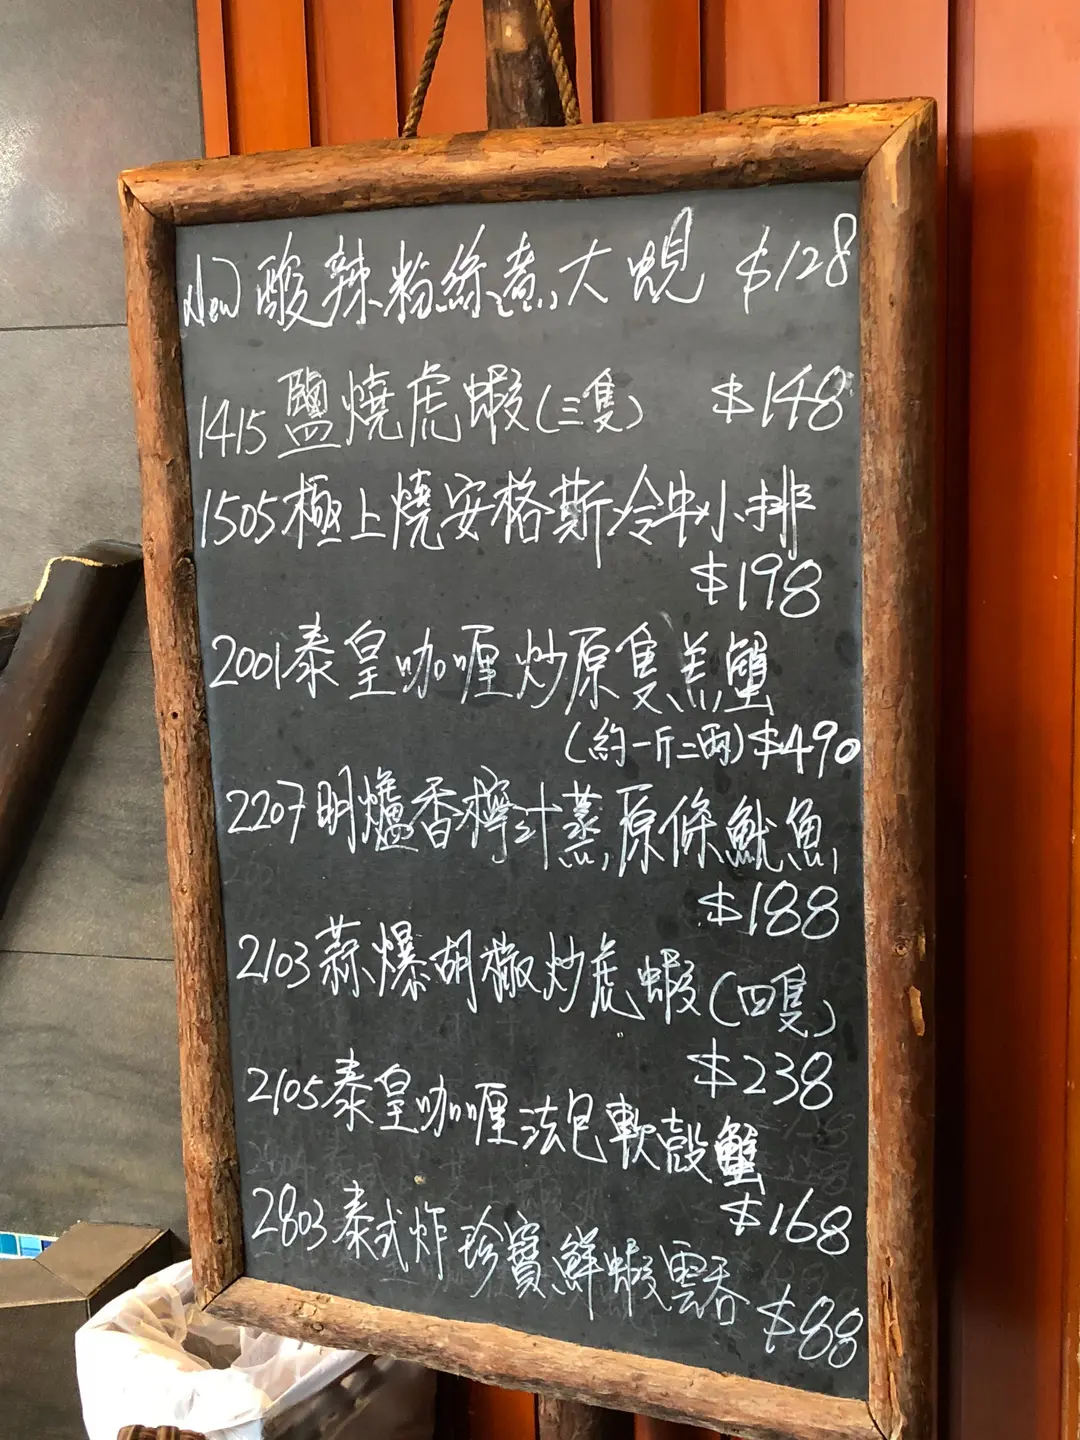 New 酸辣粉絲煮大蜆 $128
1415 鹽燒虎蝦(三隻) $148
1505 極上燒安格斯冷牛小排
$198
2001 泰皇咖喱炒原隻羔蟹
(約一斤二兩) $490
2207 明爐香檸汁蒸原條魷魚
$188
2103 蒜爆胡椒炒虎蝦(四隻)
$238
2105 泰皇咖喱法包軟殼蟹
$168
2803 泰式炸珍寶鮮蝦雲吞
$88